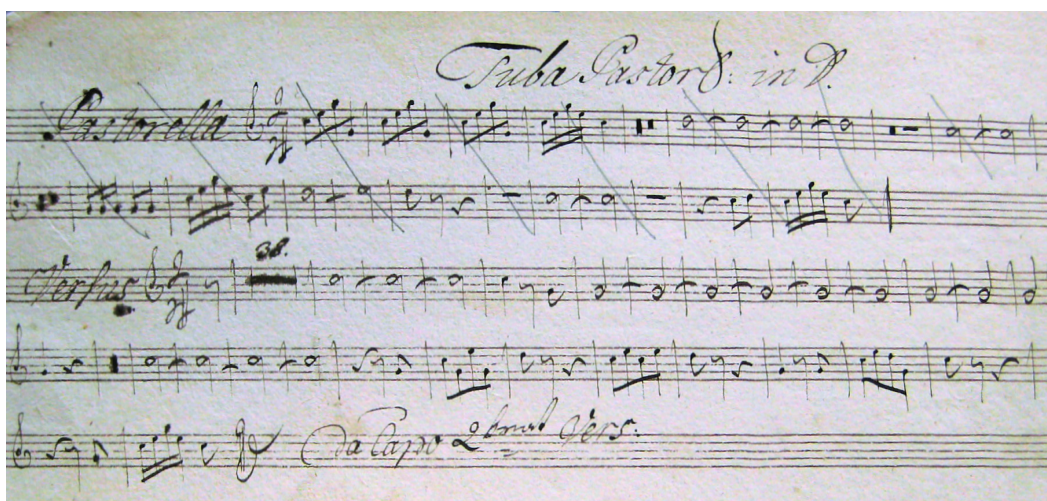 Tuba Pastor: in D.
Pastorella
38.
Versus
Da Capo 2 Vers: